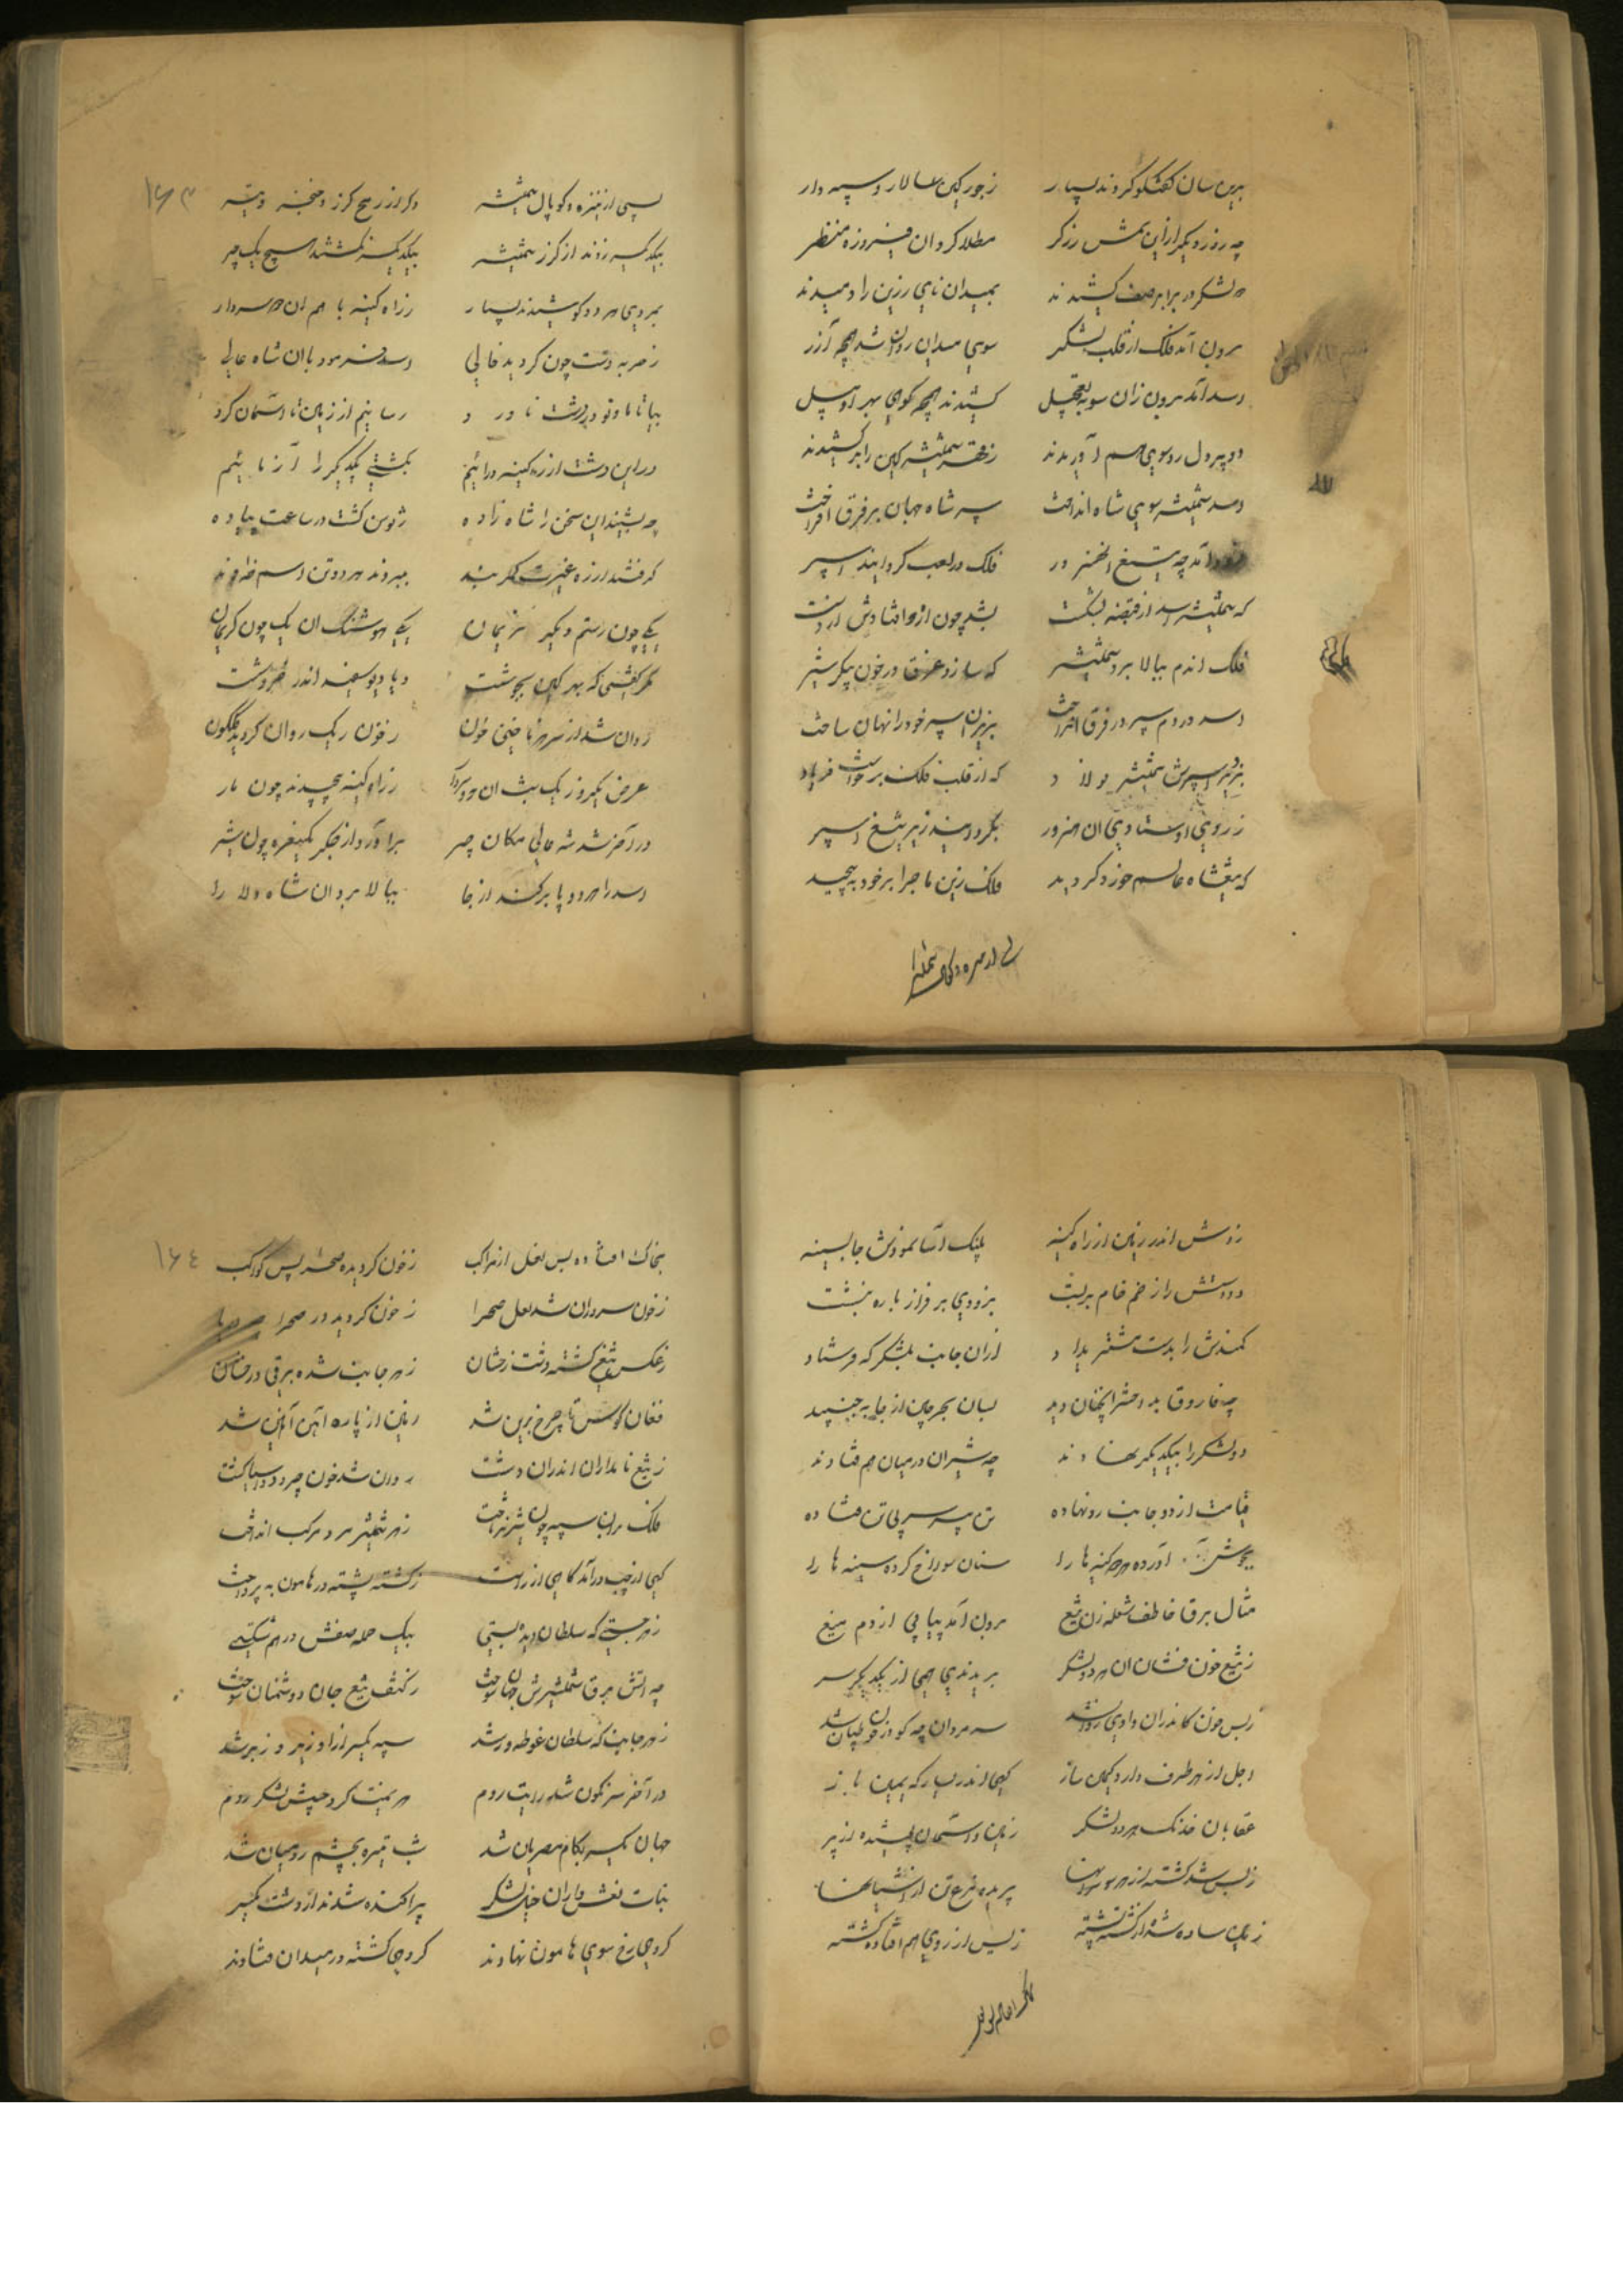 بدین سان گفتگو کردند بسیار زجور کین سالار و سپه دار
چه روز دیگر از این شمش زرکر مطلا کرد ان فیروزه منظر
دو لشکر در برابر صف کشیدند بمیدان نای رزین را دمیدند
برون آمد فلک از قلب لشکر سوی میدان روان شد همچه آزر
اسد آمد برون زان سو بتعجیل کشیدند همچه کوهی بهر او پیل
دو پیر دل رو سوی هم آوریدند زقهر شمشیر کین را برکشیدند
اسد شمشیر سوی شاه انداخت سپر شاه جهان بر فرق افراخت
فرود آمد چه تیغ الخنر ور فلک در لعب کردانید اسپر
که شمشیر اسد از قبضه بشکست بشد چون اژدها فتادش از دست
فلک اندم ببالا برد شمشیر که سازد غرق در خون پیکر شیر
اسد در دم سپر در فرق افراخت بزیر ان سپر خود را نهان ساخت
بزد بر اسپرش شمشیر پولاد که از قلب فلک برخواست فریاد
ز روی اوستادی ان هنرور بکردانید زیر تیغ اسپر
که تیغ شاه عالم خورد کردید فلک زین ماجرا بر خود بپیچید
پسی از نیزه و کوپال شمشیر
پسی از نیزه و کوپال شمشیر دکر از رمح کرز و خنجر و تیر ۱۶۳
بیکدیکر زدند از کرز شمشیر بیکدیکر نکشتند هیچ یک چیر
بمردی هر دو کوشیدند بسیار ز راه کینه با هم ان دو سردار
ز حربه دست چون کردید خالی اسد فرمود با ان شاه عالی
بیا تا ما و تو در دشت ناورد رسانیم از زمین تا آسمان کرد
در این دشت از ره کینه درائیم بکشتی یکدیکر را آزمائیم
چه بشنید این سخن را شاه زاده ز توسن کشت در ساعت پیاده
کرفتند از ره غیرت کمر بند
یکی چون رستم و دیکر نریمان یکی هوشنک ان یک چون کریمان
مکر کفتی که بهر کین بجوشست و یا دیو سفید اندر خروشست
روان شد از سر هر ناخنی خون ز خون ریک روان کردید کلکون
غرض یکروز یک شب ان دو سردار ز راه کینه پیچیدند چون مار
در آخر شد شه عالی مکان چیر برآورد از جکر یک نعره چون شیر
اسد را هر دو پا برکند از جا ببالا برد ان شاه والا را
زدش اندر زمین از راه کینه پلنک آسا نمودش جا بسینه
دو دستش را ز خم خام بربست بزودی بر فراز باره بنشست
کمندش را بدست مشتر بداد ازان جانب بلشکر که فرستاد
چه فاروق بد اختر انچنان دید بسان بحر چین از جا بجنبید
دو لشکر را بیکدیکر نهادند چه شیران در میان هم فتادند
قیامت از دو جانب رو نهاده تن بی سر سر بی تن فتاده
بجوش آورده هر کینه ها را سنان سوراخ کرده سینه ها را
مثال برق خاطف شعله زن تیغ برون آمد پیاپی از دم میغ
ز تیغ خون فشان ان هر دو لشکر بریدندی همی از یکدیکر سر
ز بس خون کاندران وادی روان شد سر مردان چه کو در خون طپان شد
اجل از هر طرف دارد کمین ساز
عقابان خدنک هر دو لشکر زمین و آسمان پوشیده از پر
ز بس شد کشته از هر سو پریده مرغ تن از آشیانها
زمین ساده شد از کشته پشته ز بس از روی هم افتاده کشته
بخاک افتاده بس نعل از مراکب ز خون کردیده صحرا پس کواکب ۱۶۴
ز خون سروران شد لعل صحرا ز خون کردید در صحرا
ز عکس تیغ کشته دشت زخشان ز هر جانب شده برقی درخشان
فغان کوس تا چرخ برین شد زمین از پاره آهن آهنین شد
ز تیغ نامداران اندران دشت روان شد خون چه رود و آسیا کشت
فلک بران سپه چون شیر نر تاخت ز هر شمشیر مرد و مرکب انداخت
کهی از چپ در آمد کاهی از راست ز کشته پشته در هامون به پرداخت
ز هر جستی که سلطان دیو بستی بیک حمله صفش در هم شکستی
چه آتش برق شمشیرش جهان سوخت ز کتف تیغ جان دوشمنان سوخت
ز هر جانب که سلطان غوطه ور شد سپه یکسر ازاو زیر و زبر شد
در آخر سرنکون شد رایت روم هزیمت کرد جیش لشکر روم
جهان یکسر بکام مصریان شد شب تیره بچشم رومیان شد
بنات نعش واران خیل لشکر پراکنده شدند از دشت یکسر
کروهی رخ سوی هامون نهادند کروهی کشته در میدان فتادند